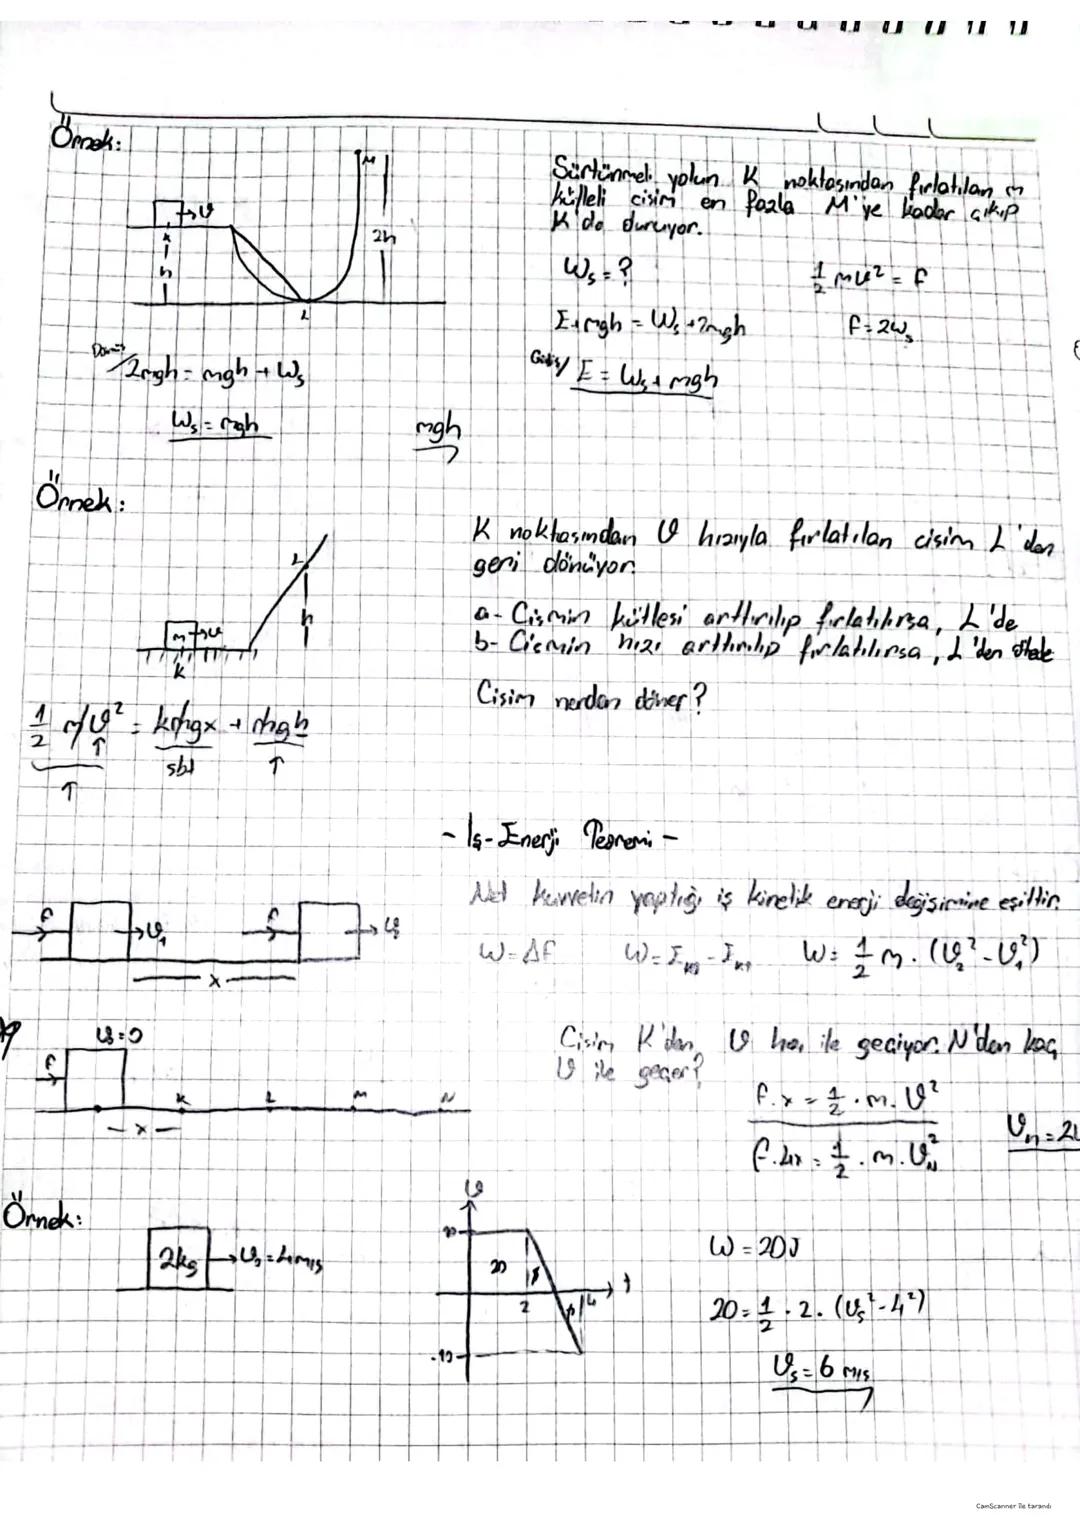 Örnek:
Sürtünmeli yolun K noktasından fırlatılan m
kütleli cisim en fazla M'ye kadar çıkıp
K'da duruyor.
M
υ
2h
K
h
L
Ws = ?
1/2 mυ² = E
E+mgh = Ws+2mgh
E = 2Ws
Dönüş/ 2mgh = mgh + Ws
Gidiş/ E = Ws + mgh
Ws = mgh
mgh
Örnek:
K noktasından υ hızıyla fırlatılan cisim L'den
geri dönüyor.
L
h
m υ
K
a- Cismin kütlesi arttırılıp fırlatılırsa, L'de
b- Cismin hızı arttırılıp fırlatılırsa, L'den ötede
Cisim nerden döner?
1/2 mυ² = kmgx + mgh
↑ sbt ↑
↑
- İş-Enerji Teoremi -
Net kuvvetin yaptığı iş kinetik enerji değişimine eşittir.
F υ₁ F υ₂
x
W = ΔE W = Eks - Eki W = 1/2 m . (υ₂² - υ₁²)
υ=0
F
K L M N
x
Cisim K'dan υ hızı ile geçiyor. N'den kaç
υ ile geçer?
F.x = 1/2 . m . υ²
F.4x = 1/2 . m . υN²
υn = 2υ
Örnek:
2kg υ₀ = 4 m/s
υ
10
20
2
4
t
-10
W = 20J
20 = 1/2 . 2 . (υs² - 4²)
υs = 6 m/s
CamScanner ile tarandı